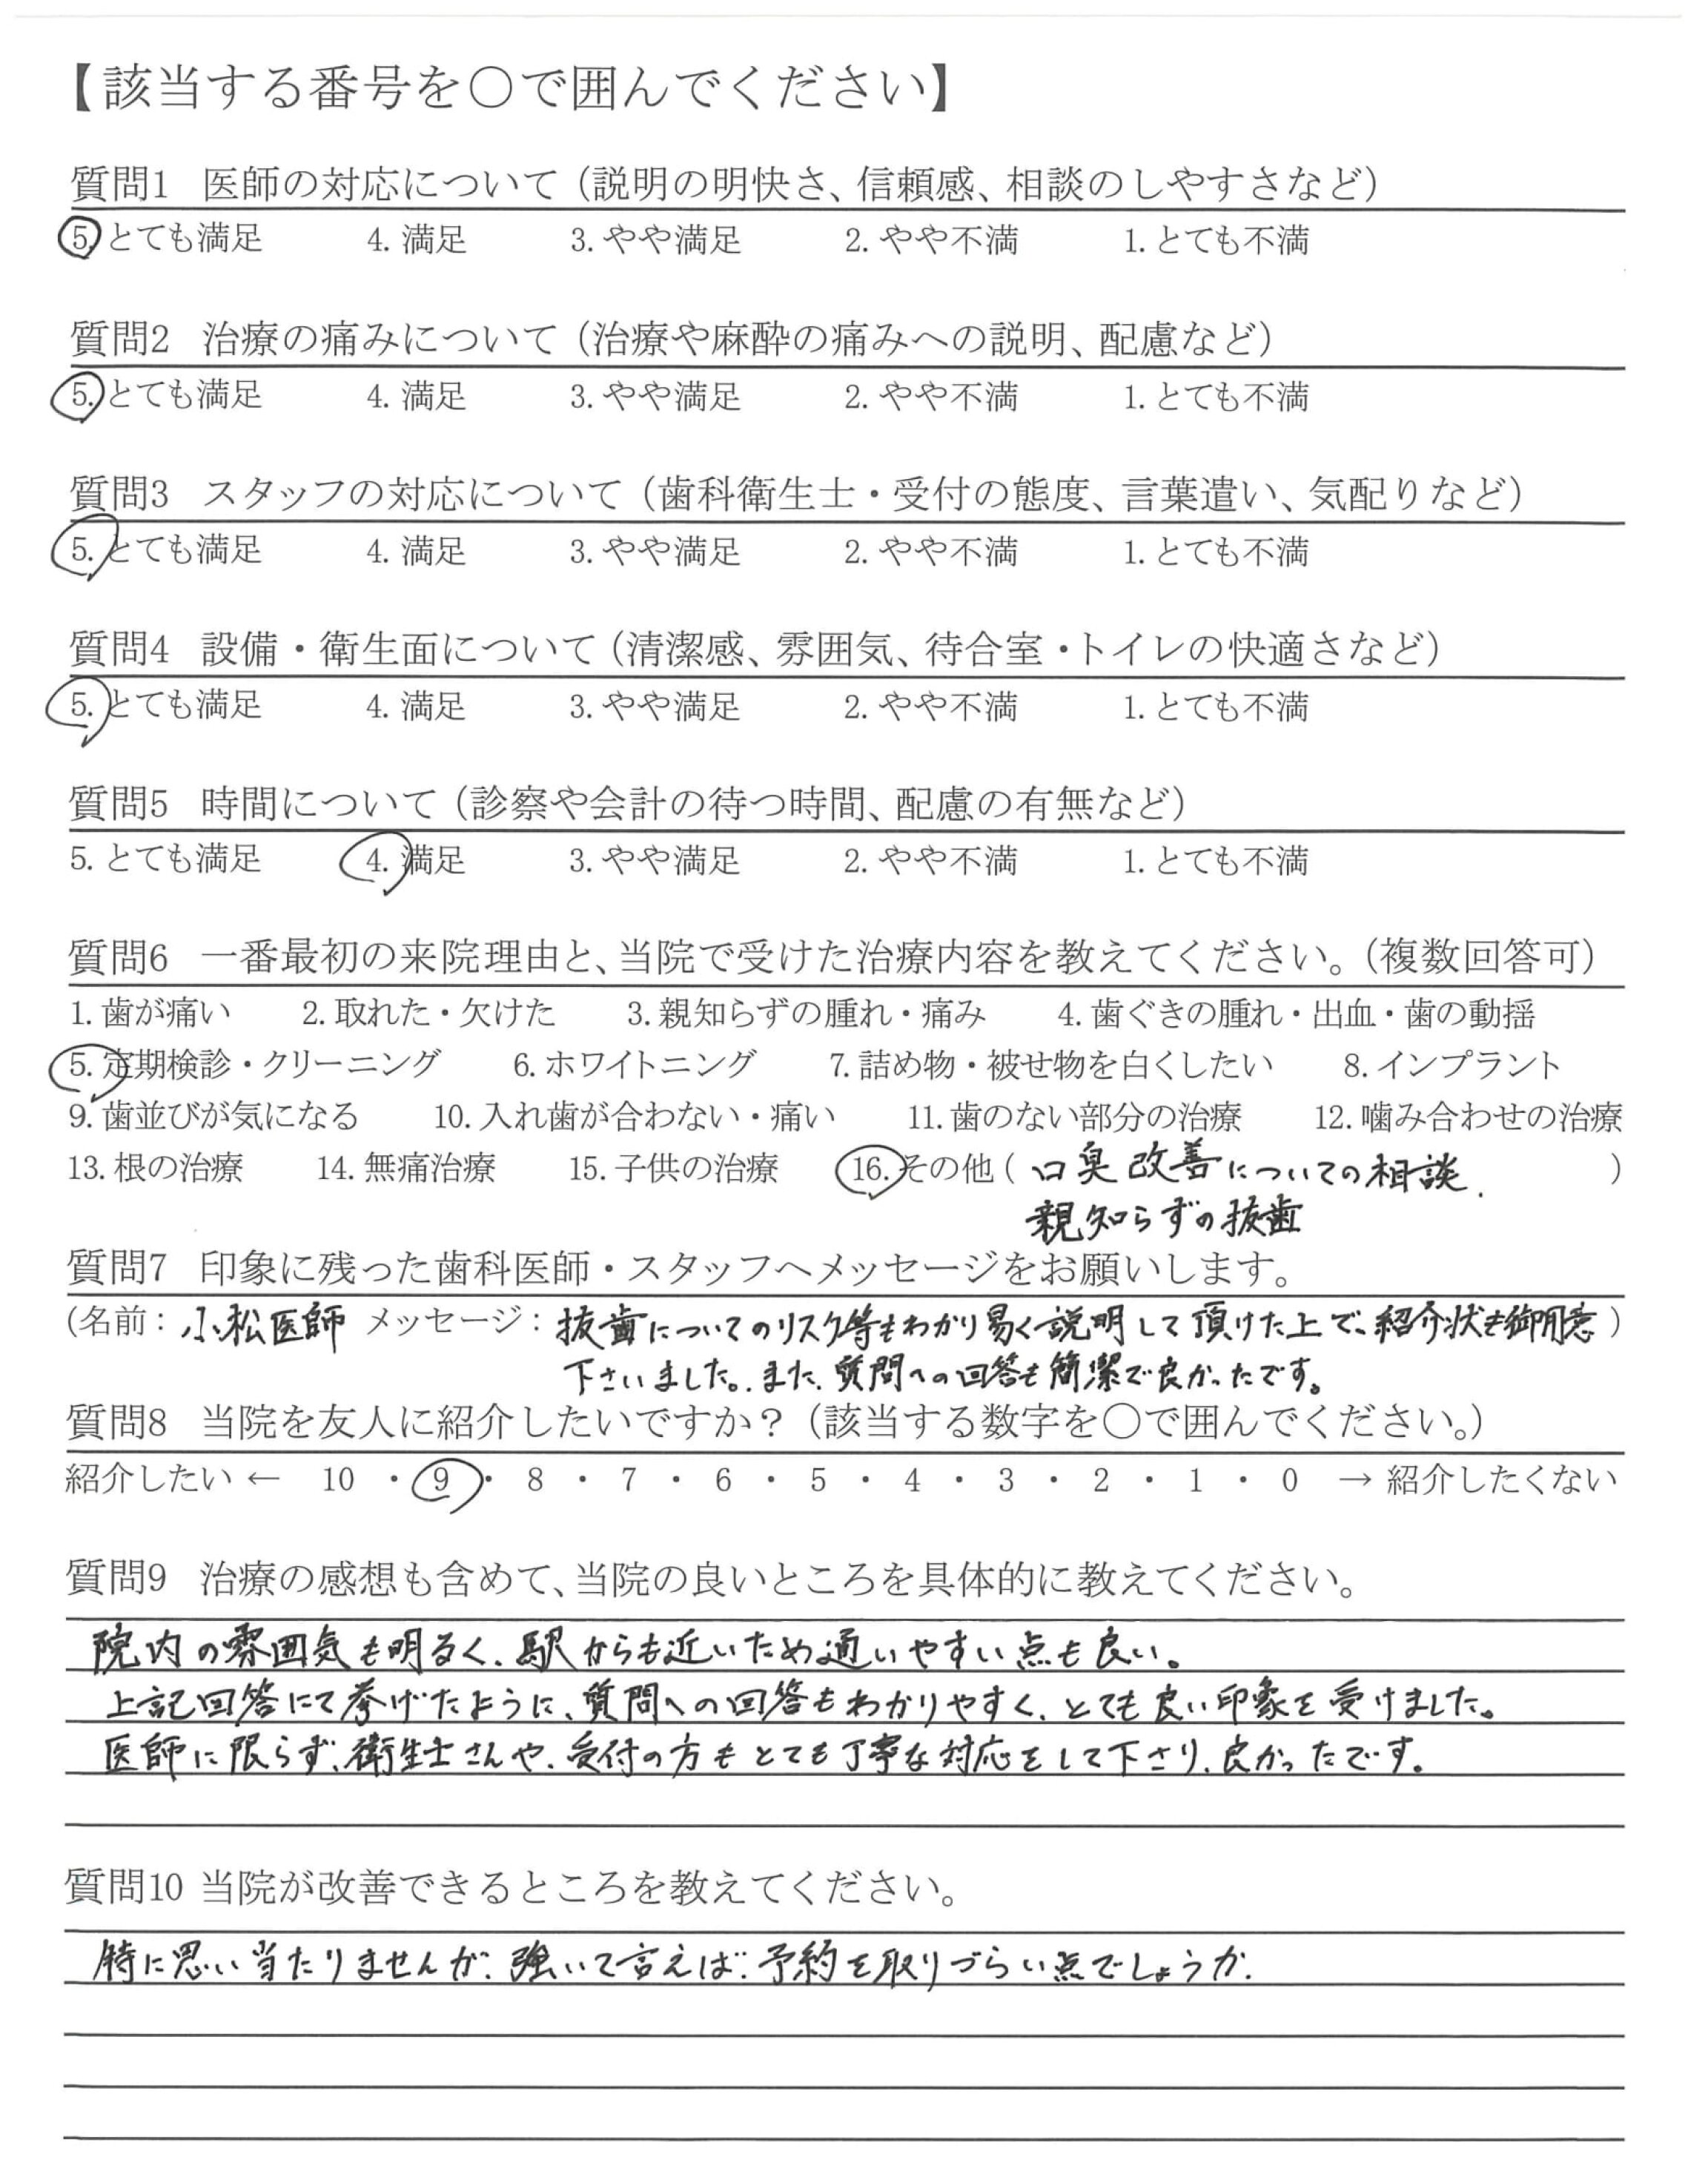 【該当する番号を○で囲んでください】
質問1 医師の対応について（説明の明快さ、信頼感、相談のしやすさなど）
5. とても満足 4. 満足 3. やや満足 2. やや不満 1. とても不満
質問2 治療の痛みについて（治療や麻酔の痛みへの説明、配慮など）
5. とても満足 4. 満足 3. やや満足 2. やや不満 1. とても不満
質問3 スタッフの対応について（歯科衛生士・受付の態度、言葉遣い、気配りなど）
5. とても満足 4. 満足 3. やや満足 2. やや不満 1. とても不満
質問4 設備・衛生面について（清潔感、雰囲気、待合室・トイレの快適さなど）
5. とても満足 4. 満足 3. やや満足 2. やや不満 1. とても不満
質問5 時間について（診察や会計の待つ時間、配慮の有無など）
5. とても満足 4. 満足 3. やや満足 2. やや不満 1. とても不満
質問6 一番最初の来院理由と、当院で受けた治療内容を教えてください。（複数回答可）
1. 歯が痛い 2. 取れた・欠けた 3. 親知らずの腫れ・痛み 4. 歯ぐきの腫れ・出血・歯の動揺
5. 定期検診・クリーニング 6. ホワイトニング 7. 詰め物・被せ物を白くしたい 8. インプラント
9. 歯並びが気になる 10. 入れ歯が合わない・痛い 11. 歯のない部分の治療 12. 噛み合わせの治療
13. 根の治療 14. 無痛治療 15. 子供の治療 16. その他（口臭改善についての相談、）
親知らずの抜歯
質問7 印象に残った歯科医師・スタッフへメッセージをお願いします。
（名前：小松医師 メッセージ：抜歯についてのリスク等もわかり易く説明して頂けた上で、紹介状も御用意）
下さいました。また、質問への回答も簡潔で良かったです。
質問8 当院を友人に紹介したいですか？（該当する数字を○で囲んでください。）
紹介したい ← 10 ・ 9 ・ 8 ・ 7 ・ 6 ・ 5 ・ 4 ・ 3 ・ 2 ・ 1 ・ 0 → 紹介したくない
質問9 治療の感想も含めて、当院の良いところを具体的に教えてください。
院内の雰囲気も明るく、駅からも近いため通いやすい点も良い。
上記回答にて挙げたように、質問への回答もわかりやすく、とても良い印象を受けました。
医師に限らず、衛生士さんや、受付の方もとても丁寧な対応をして下さり、良かったです。
質問10 当院が改善できるところを教えてください。
特に思い当たりませんが、強いて言えば、予約を取りづらい点でしょうか。